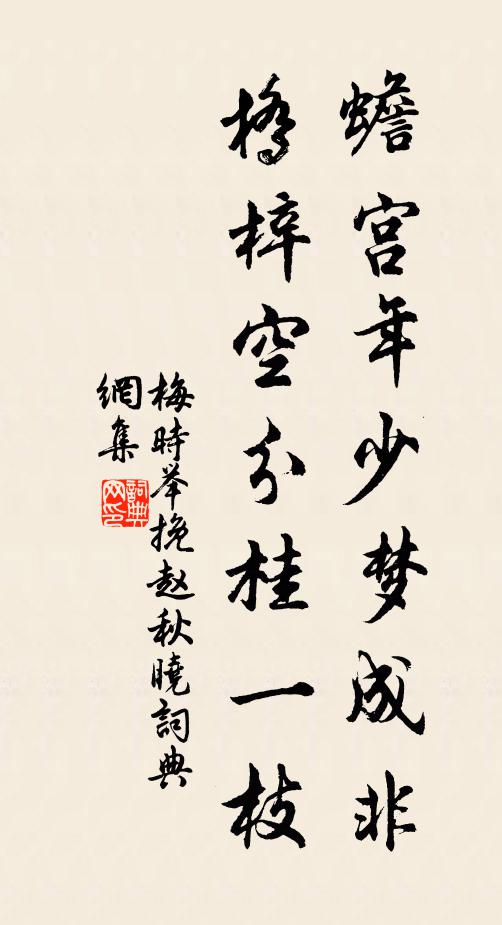 蟾宫年少梦成非
桥梓空分桂一枝
梅時举挽赵秋曉詞典
網集
詞典
网印